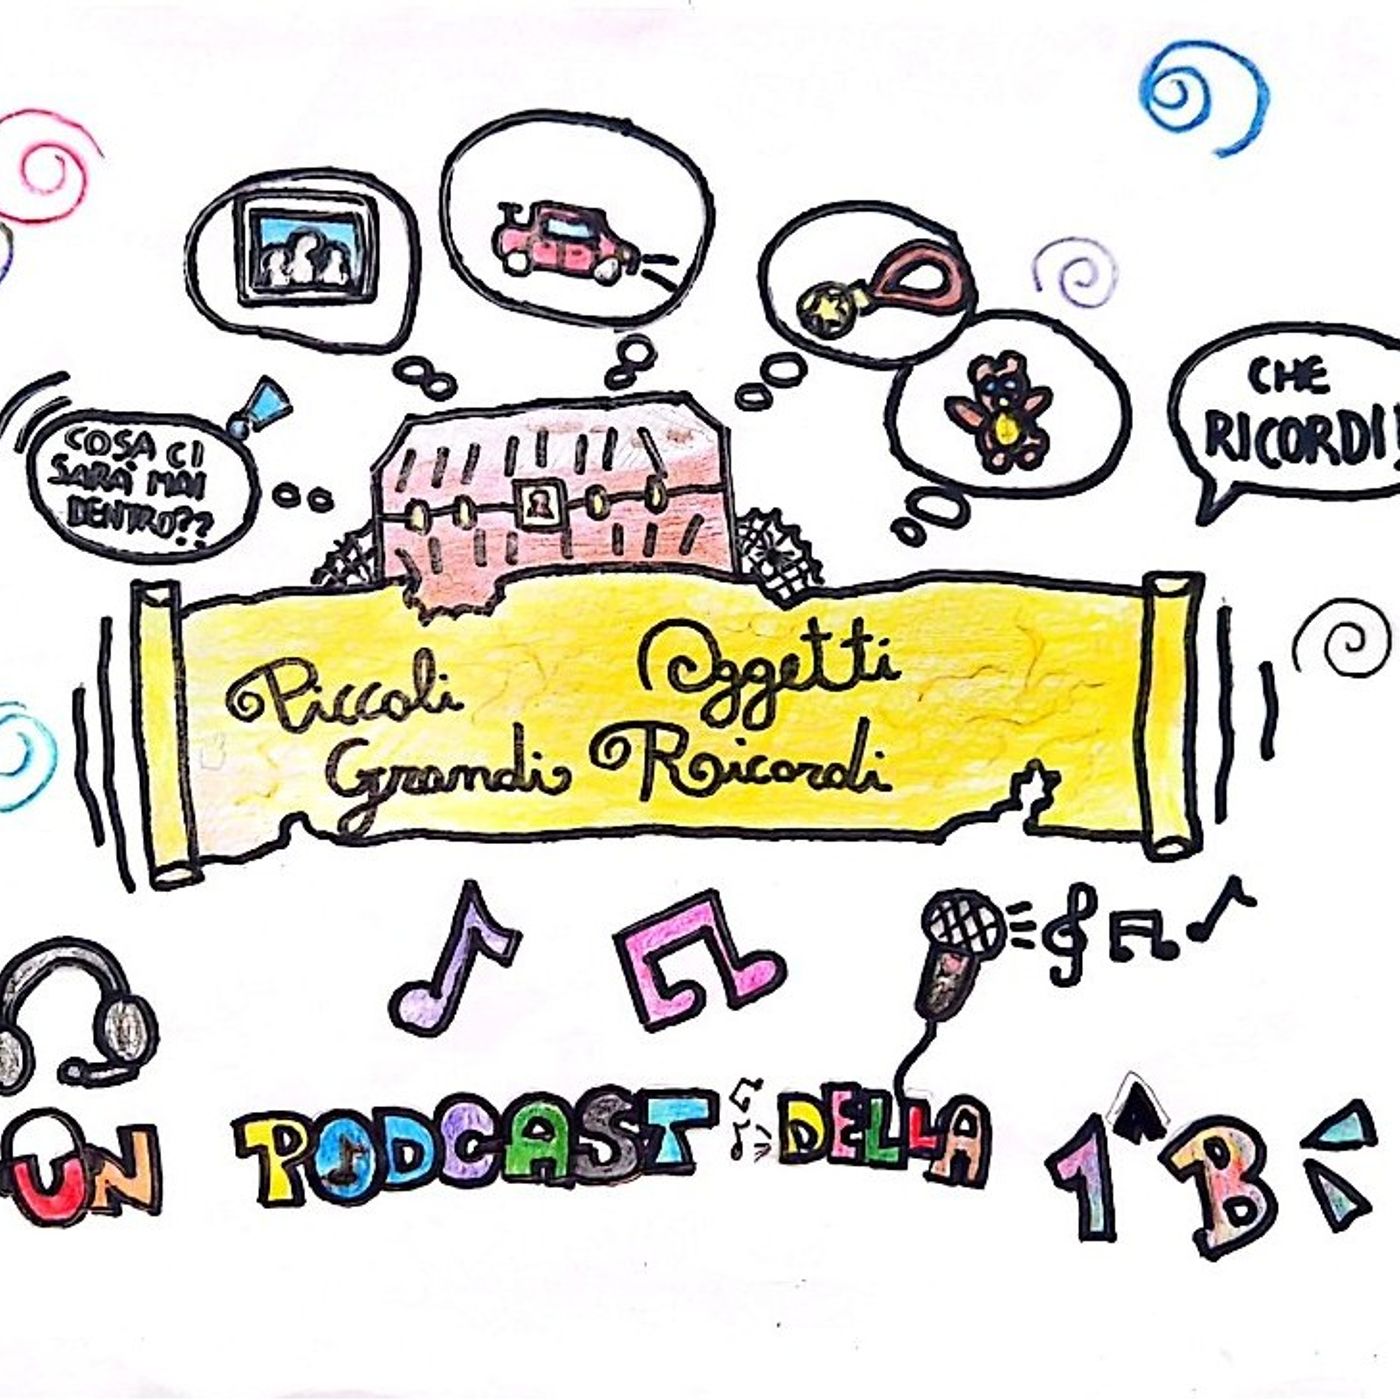 COSA CI
SARÀ MAI
DENTRO??
CHE
RICORDI!
Piccoli Oggetti
Grandi Ricordi
UN PODCAST DELLA 1^B